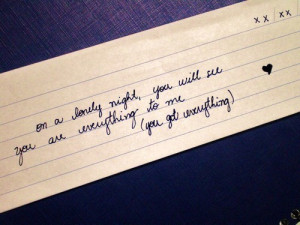 xx / xx
on a lonely night, you will see
you are everything to me
(you got everything)